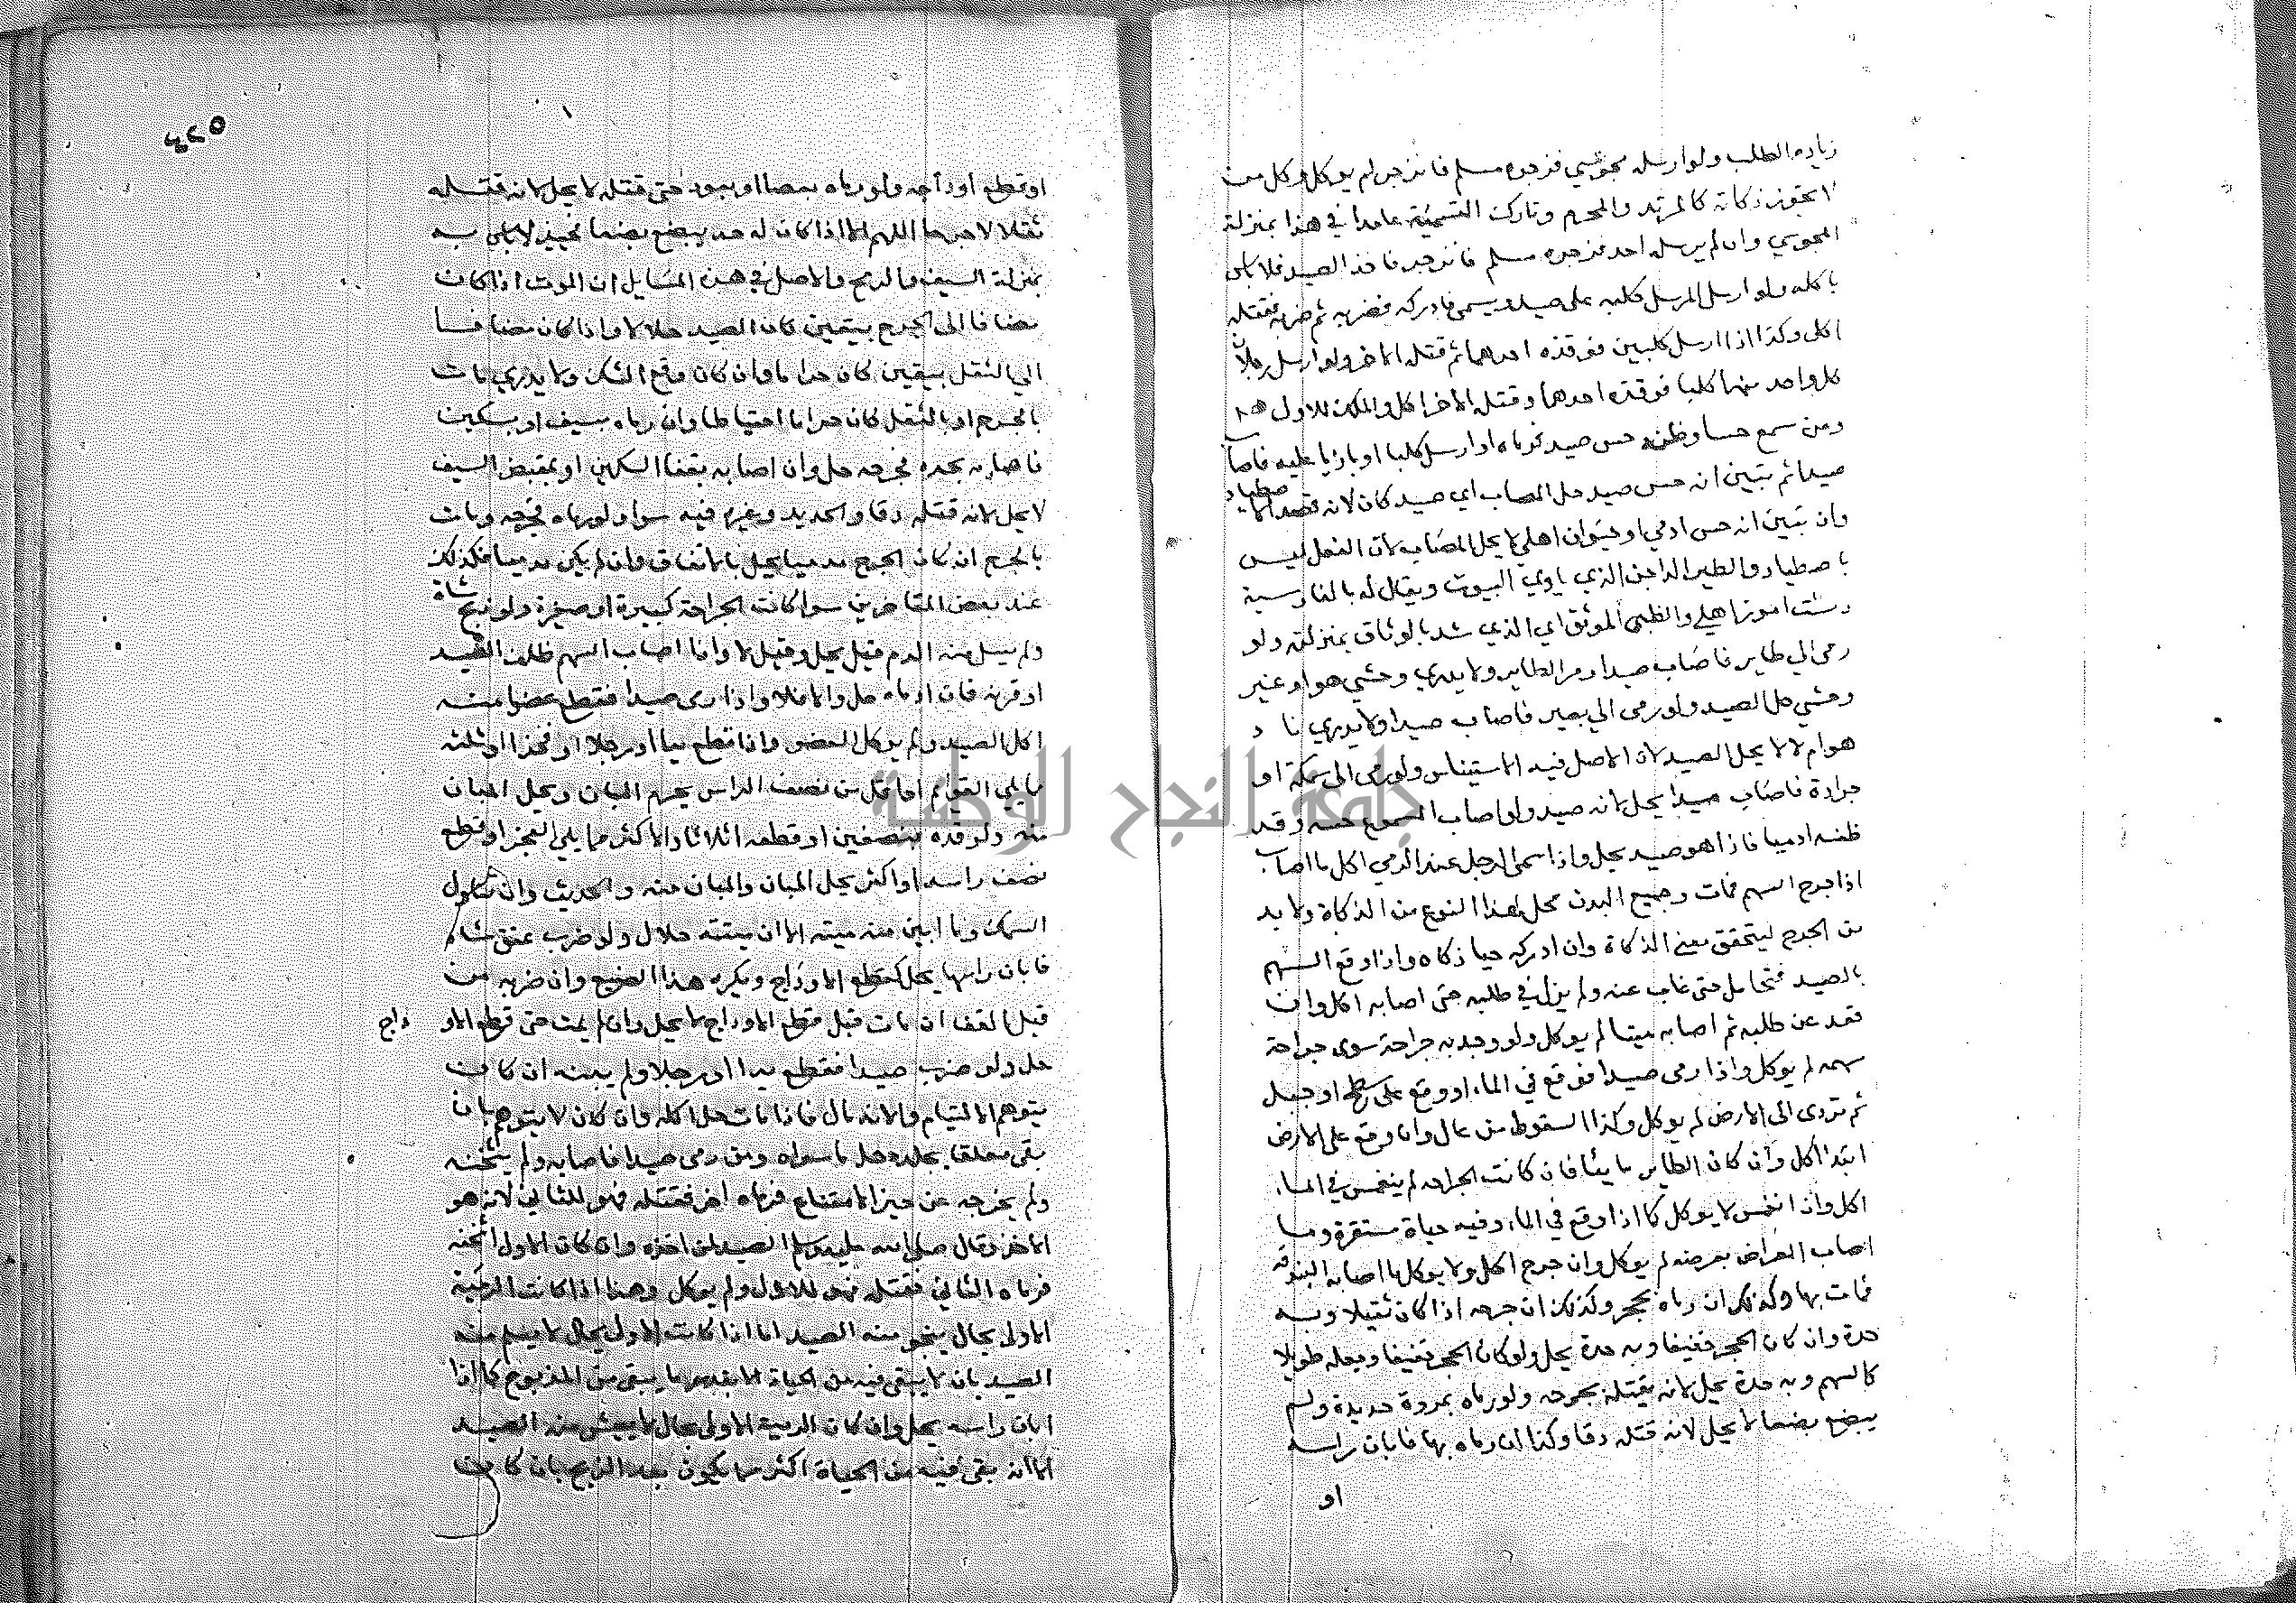 زياده الطلب ولو ارسله مجوسي فزجره مسلم فانزجر لم يوكل وكل من
لا تجوز ذكاته كالمرتد والمحرم وتارك التسمية عامدا في هذا بمنزلة
المجوسي وان لم يرسله احد فزجره مسلم فانزجر فاخذ الصيد فلا باس
باكله ولو ارسل المرسل كلبه على صيد وسمى فادركه فضربه ثم ضربه فقتله
اكل وكذا اذا ارسل كلبين فوقذه احدهما ثم قتله الاخر ولو ارسل رجلان
كل واحد منهما كلبا فوقذه احدهما وقتله الاخر اكل والملك للاول
ومن سمع حسا وظنه حس صيد فرماه او ارسل كلبا او بازيا عليه فاصاب
صيدا ثم تبين انه حس صيد حل المصاب اي صيد كان لانه قصد الاصطياد
وان تبين انه حس ادمي او حيوان اهلي لا يحل المصاب لان الفعل ليس
باصطياد والطير الداجن الذي ياوي البيوت ويقال له بالفارسية
دست اموز اهلي والظبي الموثق اي الذي شد بالوثاق بمنزلته ولو
رمى الي طاير فاصاب صيدا ومر الطاير ولا يدري وحشي هو او غير
وحشي حل الصيد ولو رمى الي بعير فاصاب صيدا ولا يدري ناد
هو ام لا لا يحل الصيد لان الاصل فيه الاستيناس ولو رمى الى سمكة او
جرادة فاصاب صيدا يحل لانه صيد ولو اصاب المسموع حسه وقد
ظنه ادميا فاذا هو صيد يحل واذا سمى الرجل عند الرمي اكل ما اصاب
اذا جرح السهم فمات وجميع البدن محل لهذا النوع من الذكاة ولا بد
من الجرح ليتحقق معنى الذكاة وان ادركه حيا ذكاه واذا وقع السهم
بالصيد فتحامل حتى غاب عنه ولم يزل في طلبه حتى اصابه اكل وان
قعد عن طلبه ثم اصابه ميتا لم يوكل ولو وجد به جراحة سوى جراحة
سهمه لم يوكل واذا رمى صيدا فوقع في الماء او وقع على سطح او جبل
ثم تردى الى الارض لم يوكل وكذا السقوط من عال وان وقع على الارض
ابتدا اكل وان كان الطاير مايئا فان كانت الجراحه لم ينغمس في الماء
اكل وان انغمس لا يوكل كما اذا وقع في الماء وفيه حياة مستقرة وما
اصاب المعراض بعرضه لم يوكل وان جرح اكل ولا يوكل ما اصابه البندقة
فمات بها وكذلك ان رماه بحجر وكذلك ان جرحه اذا كان ثقيلا وبه
حدة وان كان الحجر خفيفا وبه حدة يحل ولو كان الحجر خفيفا وجعله طويلا
كالسهم وبه حدة يحل لانه يقتله بجرحه ولو رماه بمروة حديدة ولم
يبضع بضعا لا يحل لانه قتله دقا وكذا ان رماه بها فابان راسه
او
٤٢٥
او قطع اوداجه ولو رماه بعصا او بعود حتى قتله لا يحل لانه قتله
ثقلا لا جرحا اللهم الا اذا كان له حد يبضع بضعا فحينيذ لا باس به
بمنزلة السيف والرمح والاصل في هذه المسايل ان الموت اذا كان
مضافا الى الجرح بيقين كان الصيد حلالا واذا كان مضافا
الي الثقل بيقين كان حراما وان كان وقع الشك ولا يدري مات
بالجرح او بالثقل كان حراما احتياطا وان رماه بسيف او بسكين
فاصابه بحده فجرحه حل وان اصابه بقفا السكين او بمقبض السيف
لا يحل لانه قتله دقا والحديد وغيره فيه سوا ولو رماه فجرحه ومات
بالجرح ان كان الجرح مدميا يحل بالاتفاق وان لم يكن مدميا فكذلك
عند بعض المتاخرين سوا كانت الجراحة كبيرة او صغيرة ولو ذبح شاة
ولم يسل منه الدم قيل يحل وقيل لا واذا اصاب السهم ظلف الصيد
او قرنه فان ادماه حل والا فلا واذا رمى صيدا فقطع عضوا منه
اكل الصيد ولم يوكل العضو واذا قطع يدا او رجلا او فخذا او ثلثه
مما يلي القوايم او اقل من نصف الراس يحرم المبان ويحل المبان
منه ولو قده بنصفين او قطعه اثلاثا والاكثر مما يلي العجز او قطع
نصف راسه او اكثر يحل المبان والمبان منه والحديث وان تناول
السمك وما ابين منه ميته الا ان ميتته حلال ولو ضرب عنق شاه
فابان راسها يحل لقطع الاوداج ويكره هذا الصنيع وان ضربه من
قبل القفا ان مات قبل قطع الاوداج لا يحل وان لم يمت حتى قطع الاوداج
حل ولو ضرب صيدا فقطع يدا او رجلا ولم يبنه ان كان
يتوهم الالتيام والاندمال فاذا مات حل اكله وان كان لا يتوهم بان
بقى معلقا بجلده حل ما سواه ومن رمى صيدا فاصابه ولم يثخنه
ولم يخرجه عن حيز الامتناع فرماه اخر فقتله فهو للثاني لانه هو
الاخذ وقال صلى الله عليه وسلم الصيد لمن اخذه وان كان الاول اثخنه
فرماه الثاني فقتله فهو للاول ولم يوكل وهذا اذا كانت الرمية
الاولى بحال ينجو منه الصيد اما اذا كانت الاولى بحال لا يسلم منه
الصيد بان لا يبقى فيه من الحياة الا بقدر ما يبقى من المذبوح كما اذا
ابان راسه يحل وان كان الرمية الاولى بحال لا يعيش منه الصيد
الا انه بقى فيه من الحياة اكثر مما يكون بعد الذبح بان كان
جامعة النجاح الوطنية